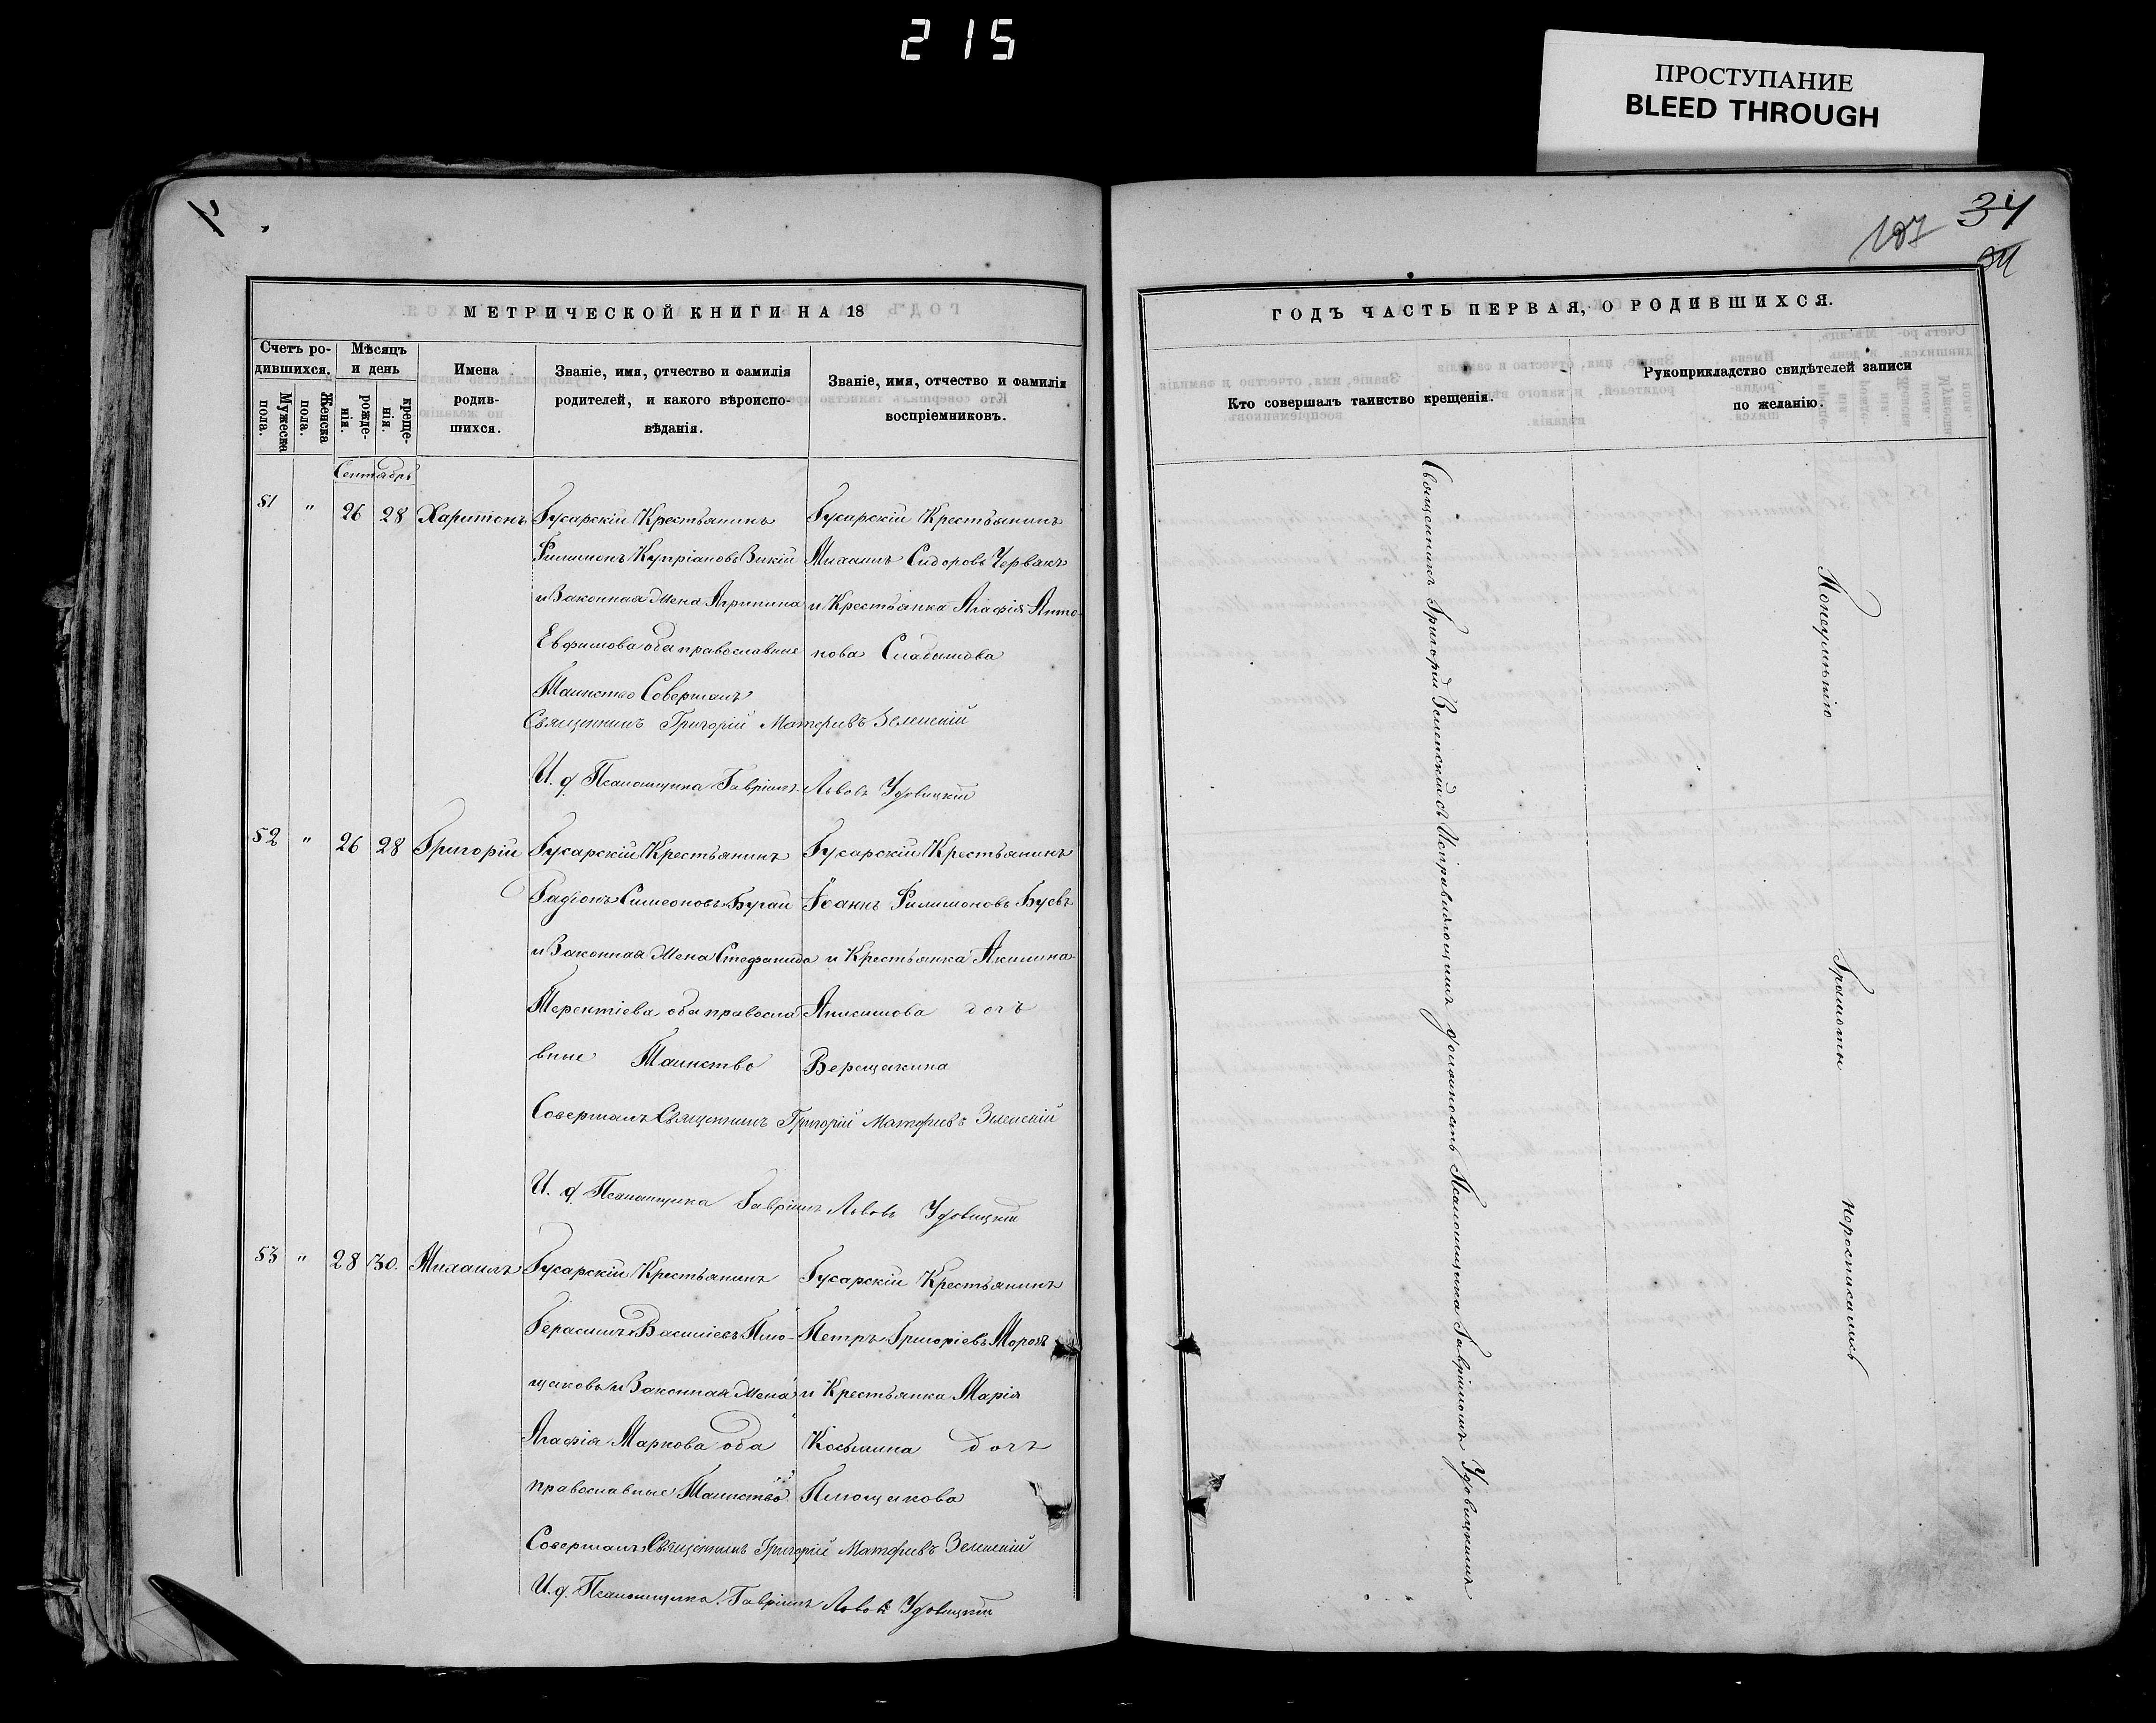 215
ПРОСТУПАНИЕ
BLEED THROUGH
34
107
МЕТРИЧЕСКОЙ КНИГИ НА 18
ГОДЪ ЧАСТЬ ПЕРВАЯ, О РОДИВШИХСЯ.
Счетъ ро-
дившихся.
Мужеска
пола.
Женска
пола.
Мѣсяцъ
и день
рожде-
нія.
креще-
нія.
Имена
родив-
шихся.
Званіе, имя, отчество и фамилія
родителей, и какого вѣроиспо-
вѣданія.
Званіе, имя, отчество и фамилія
воспріемниковъ.
Кто совершалъ таинство крещенія.
Рукоприкладство свидѣтелей записи
по желанію.
Сентябрь
51 " 26 28 Харитонъ Гусарскій Крестьянинъ Гусарскій Крестьянинъ
Филимонъ Купріановъ Михаилъ Сидоровъ Червакъ
и Законная Жена Агрипина и Крестьянка Агафія Анто-
Евфимова оба православные нова
Таинство Совершалъ
Священникъ Григорій Матфіевъ Зеленскій
И. д. Псаломщика Гавріилъ Львовъ Удовицкій
52 " 26 28 Григорій Гусарскій Крестьянинъ Гусарскій Крестьянинъ
Радіонъ Симеоновъ Бугай Іоаннъ Филимоновъ
и Законная Жена Стефанида и Крестьянка Акилина
Терентіева оба правосла Анисимова дочь
вные Таинство Верещакина
Совершалъ Священникъ Григорій Матфіевъ Зеленскій
И. д. Псаломщика Гавріилъ Львовъ Удовицкій
53 " 28 30. Михаилъ Гусарскій Крестьянинъ Гусарскій Крестьянинъ
Герасимъ Василіевъ Плю- Петръ Григоріевъ Морозъ
щаковъ и Законная Жена и Крестьянка Марія
Агафія Маркова оба Косьмина дочь
православные Таинство Плющакова
Совершалъ Священникъ Григорій Матфіевъ Зеленскій
И. д. Псаломщика Гавріилъ Львовъ Удовицкій
Священникъ Григорій Зеленскій съ Исправляющимъ должность Псаломщика Гавріиломъ Удовицкимъ
Понеумѣнію
Грамоты
неросписались